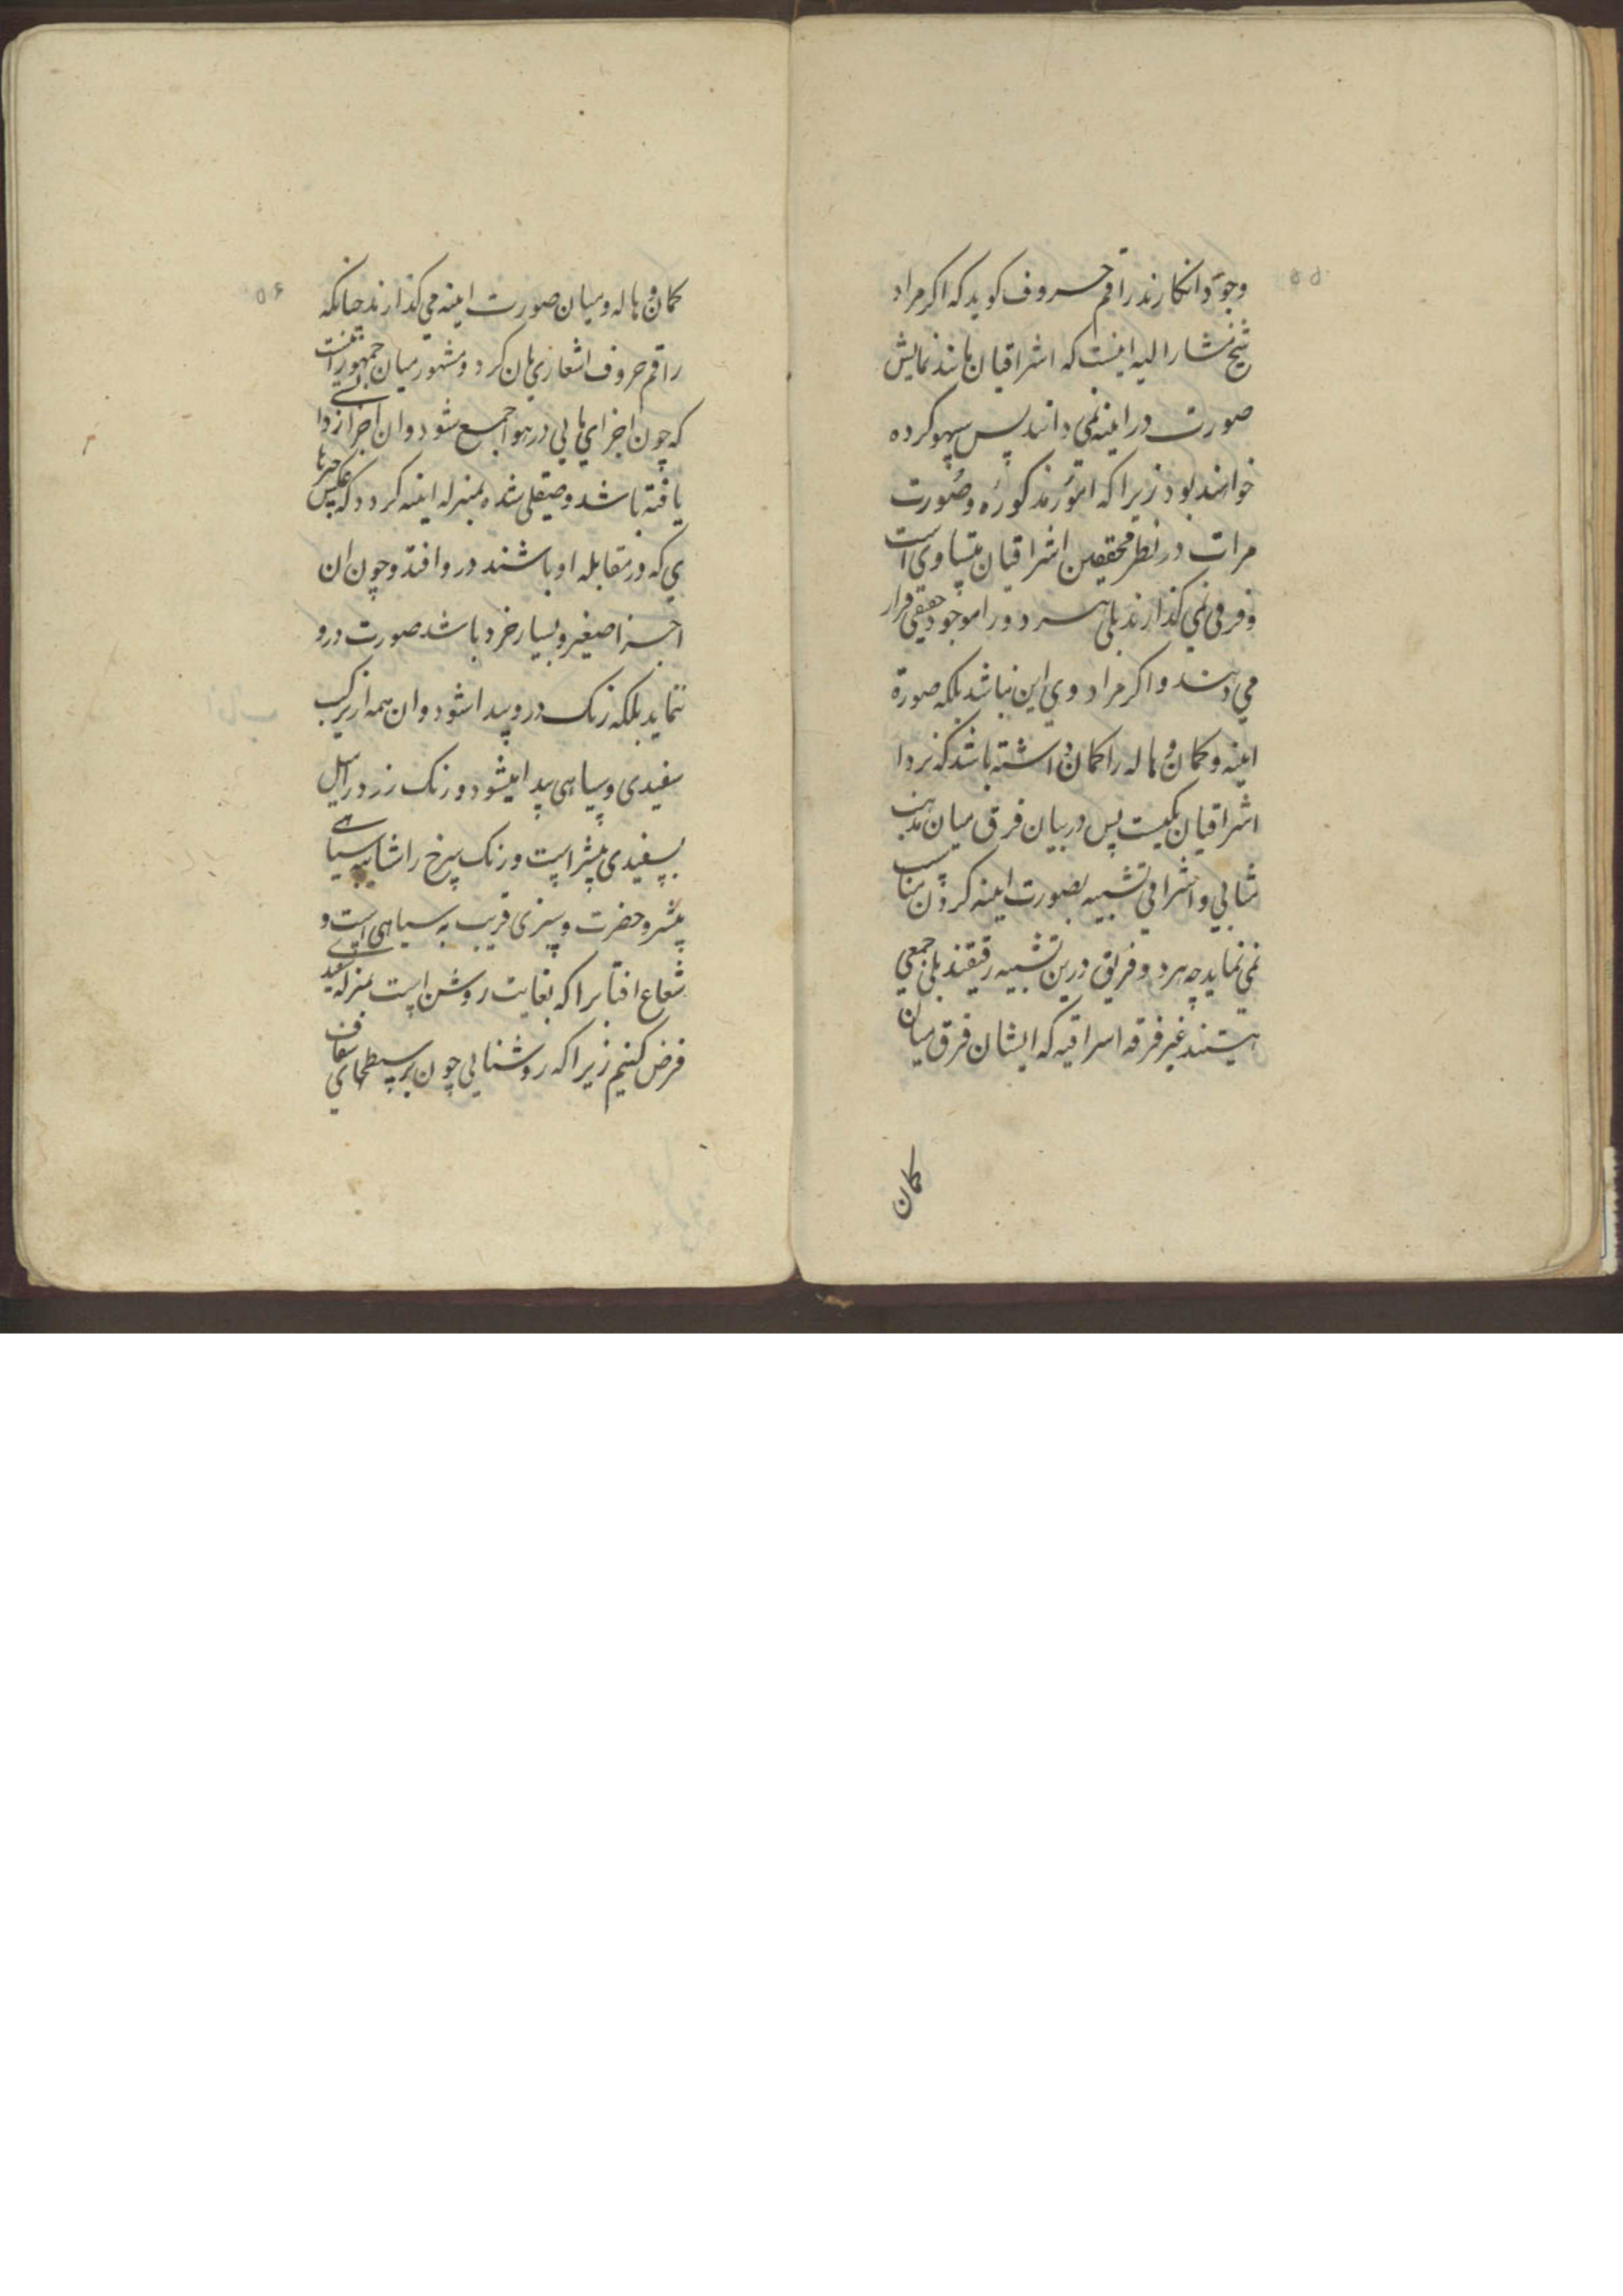 ۵۵
وجود انکارند راقم حروف کوید که اکر مراد
شیخ مشار الیه اینست که اشراقیان مانند نمایش
صورت در اینه نمی دانند پس سهو کرده
خواهند بود زیرا که امور مذکوره و صورت
مرات در نظر محققین اشراقیان متساوی است
و فرقی نمی کذارند بلی هر دو را موجود حقیقی قرار
می دهند و اکر مراد وی این نباشد بلکه صورة
اینه و کمان و هاله را کمان داشته باشد که نزد
اشراقیان یکیست پس در بیان فرق میان مذهب
مثالی و اشراقی تشبیه بصورت اینه کردن مناسب
نمی نماید چه هر دو فریق درین تشبیه رفیقند بلی جمعی
هستند غیر فرقه اسراقیه که ایشان فرق میان
کمان
۵۶
کمان و هاله و میان صورت اینه می کذارند چنانکه
راقم حروف اشعاری بان کرد و مشهور میان جمهور انست
که چون اجزای مایی در هوا جمع شود و ان اجزا زدا
یافته باشد و صیقلی شده بمنزله اینه کردد که عکس چیزها
ی که در مقابله او باشند در و افتد و چون ان
اجزا صغیر و بسیار خرد باشد صورت درو
ننماید بلکه رنک درو پیدا شود و ان همه از ترکیب
سفیدی و سیاهی پیدا میشود و رنک زرد را میل
بسفیدی بیشتر است و رنک سرخ را شایبه سیاهی
بیشتر و حضرت و سبزی قریب به سیاهی است و
شعاع افتابرا که بغایت روشن است بمنزله سفیدی
فرض کنیم زیرا که روشنایی چون بر سطحهای شفاف